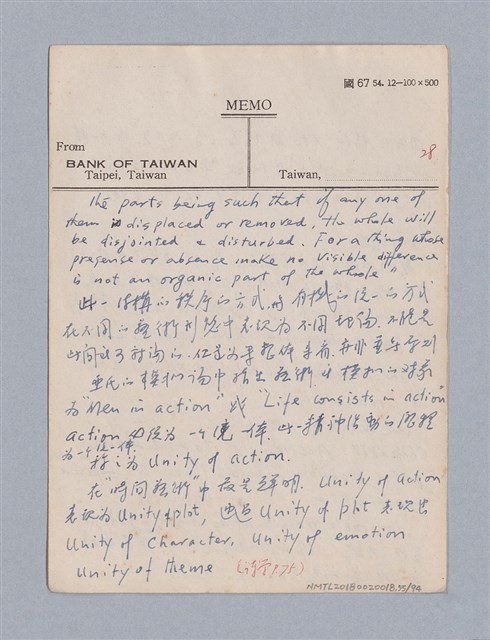 國 67 54. 12—100×500
MEMO
From
BANK OF TAIWAN
Taipei, Taiwan
Taiwan,
28
the parts being such that if any one of
them is displaced or removed, the whole will
be disjointed & disturbed. For a thing whose
presense or absence make no visible difference
is not an organic part of the whole"
此一結構的秩序的方式,有機的統一的方式
在不同的藝術類型中表現為不同
氏的模擬論中指出藝術模擬的對象
為"Men in action"或"Life consists in action"
action 為一個統一体. 此一精神活動的過程
為一個統一体.
稱之為 Unity of action.
在"時間藝術"中最是鮮明. Unity of action
表現為 Unity of plot, Unity of plot 表現出
Unity of Character, Unity of emotion
Unity of theme (詩學P.75)
NMTL20180020018.55/94